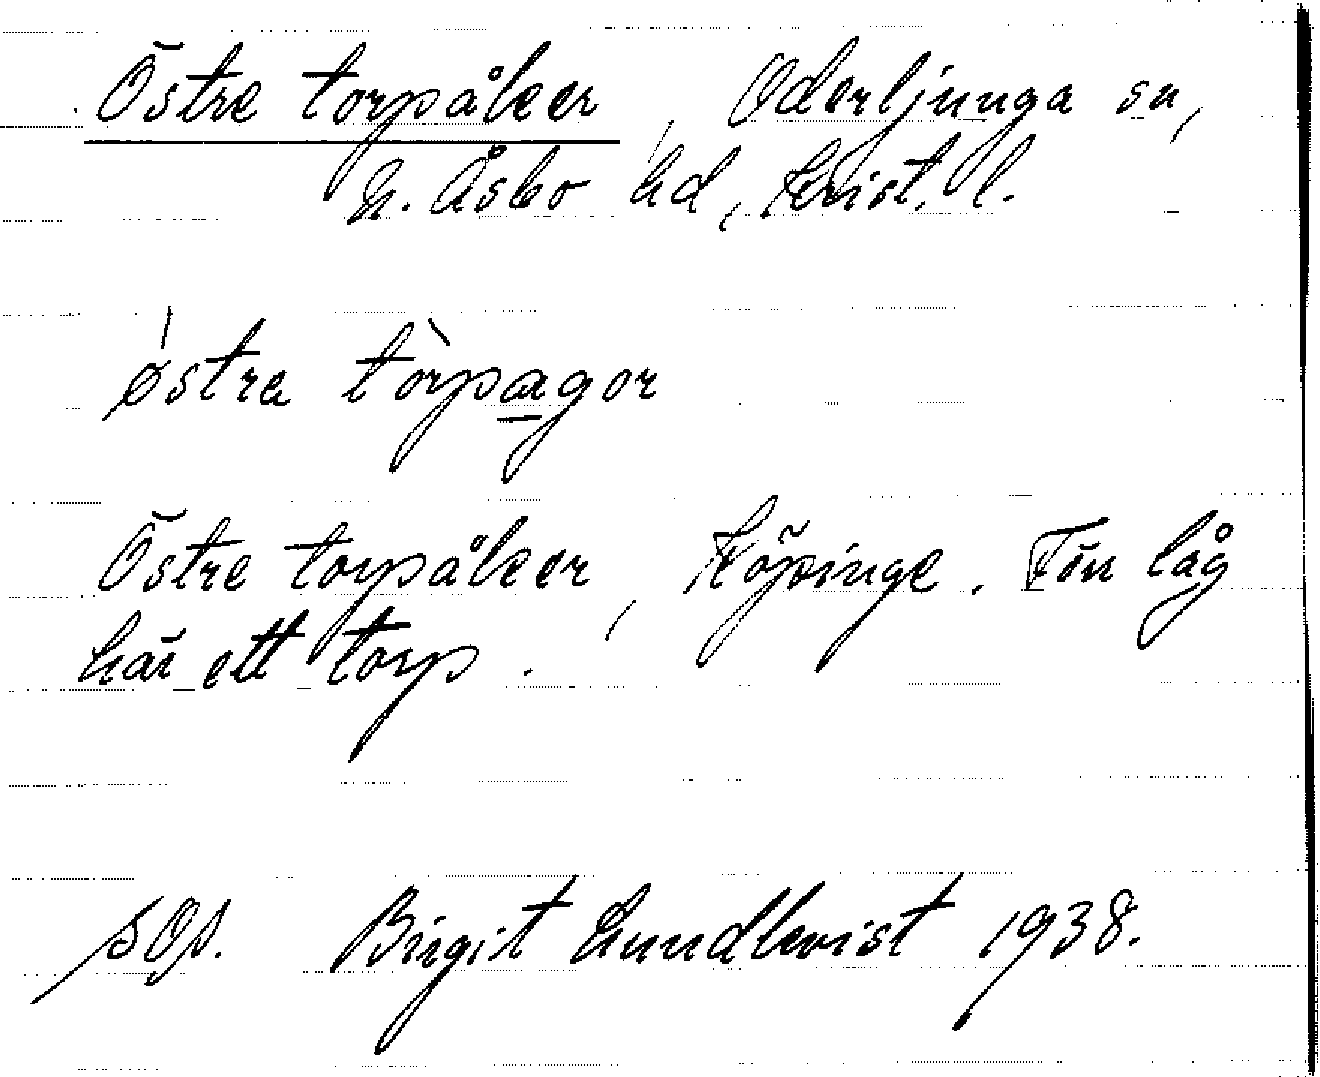 Östre torpåker, Oderljunga sn,
N. Åsbo hd, Krist. l.
østra tòrpagor
Östre torpåker, Köpinge. Förr låg
här ett torp.
Birgit Lundkvist 1938.